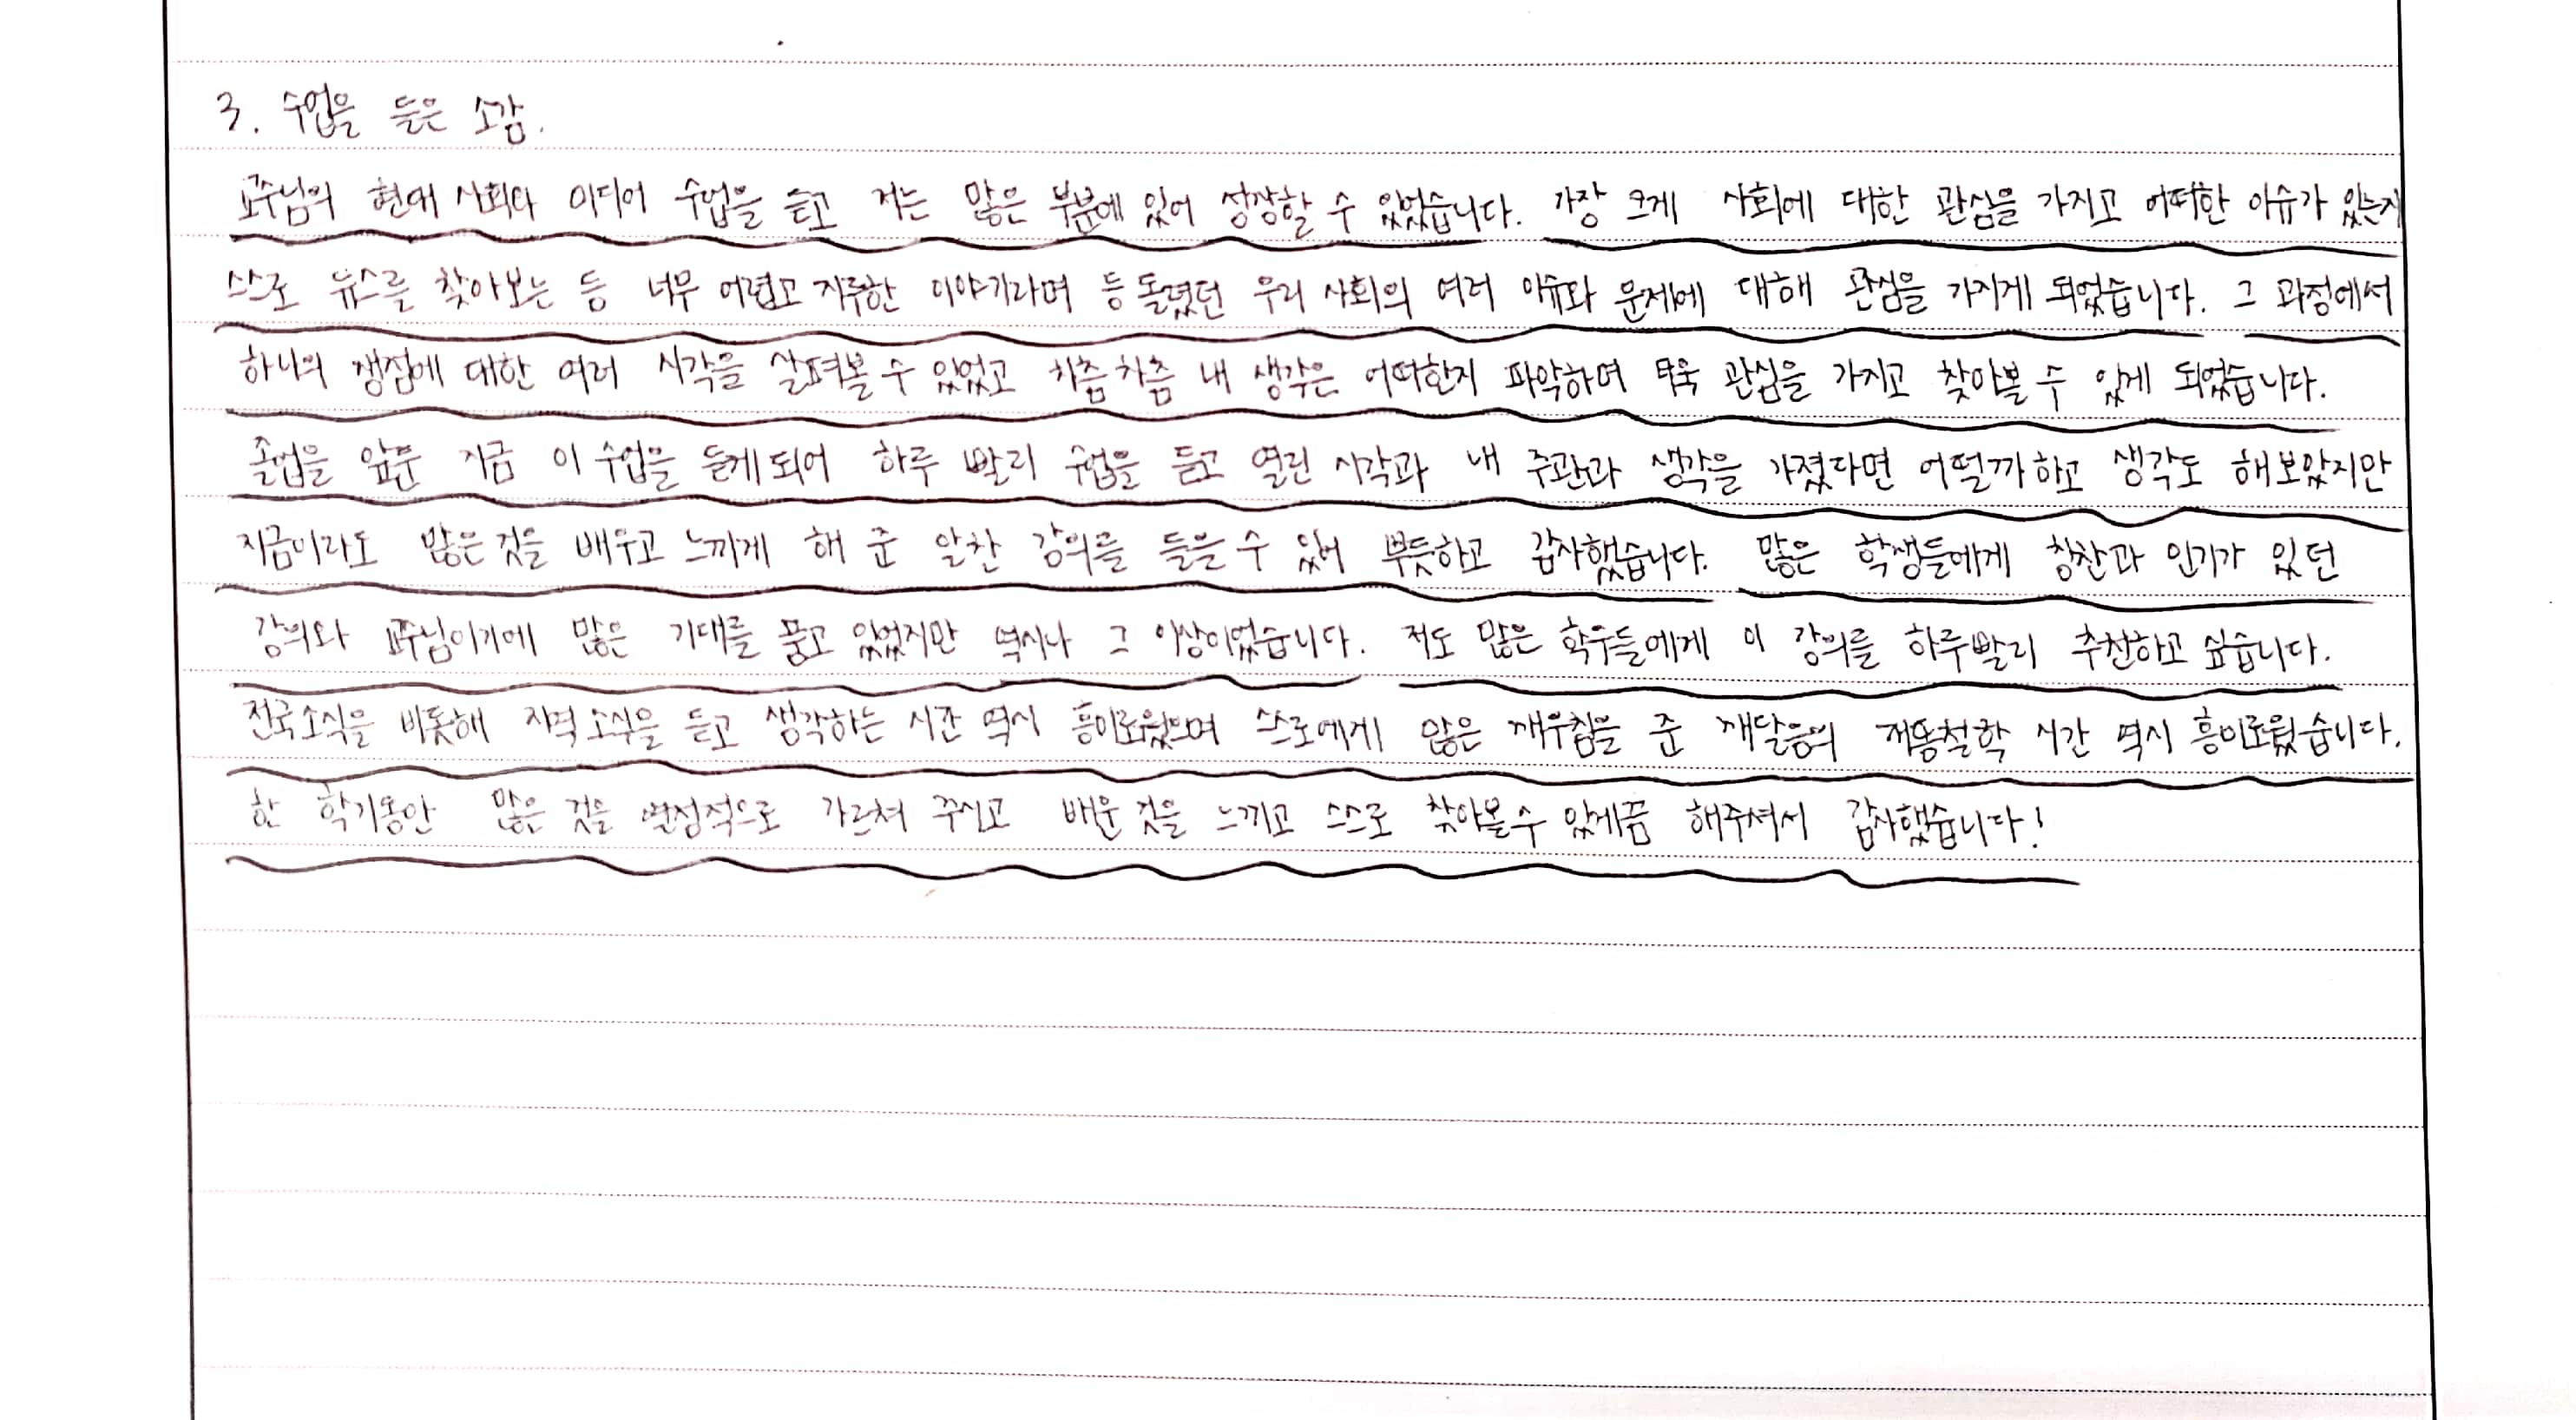 3. 수업을 들은 소감.
교수님의 현대 사회와 미디어 수업을 듣고 저는 많은 부분에 있어 성장할 수 있었습니다. 가장 크게 사회에 대한 관심을 가지고 어떠한 이슈가 있는지
스스로 뉴스를 찾아보는 등 너무 어렵고 지루한 이야기라며 등 돌렸던 우리 사회의 여러 이슈와 문제에 대해 관심을 가지게 되었습니다. 그 과정에서
하나의 쟁점에 대한 여러 시각을 살펴볼 수 있었고 차츰차츰 내 생각은 어떠한지 파악하며 더욱 관심을 가지고 찾아볼 수 있게 되었습니다.
졸업을 앞둔 지금 이 수업을 듣게 되어 하루 빨리 수업을 듣고 열린 시각과 내 주관과 생각을 가졌다면 어떨까하고 생각도 해보았지만
지금이라도 많은 것을 배우고 느끼게 해 준 알찬 강의를 들을 수 있어 뿌듯하고 감사했습니다. 많은 학생들에게 칭찬과 인기가 있던
강의와 교수님이기에 많은 기대를 품고 있었지만 역시나 그 이상이었습니다. 저도 많은 학우들에게 이 강의를 하루빨리 추천하고 싶습니다.
전국소식을 비롯해 지역 소식을 듣고 생각하는 시간 역시 흥미로웠으며 스스로에게 많은 깨우침을 준 깨달음의 개똥철학 시간 역시 흥미로웠습니다.
한 학기동안 많은 것을 열정적으로 가르쳐 주시고 배운 것을 느끼고 스스로 찾아볼 수 있게끔 해주셔서 감사했습니다!